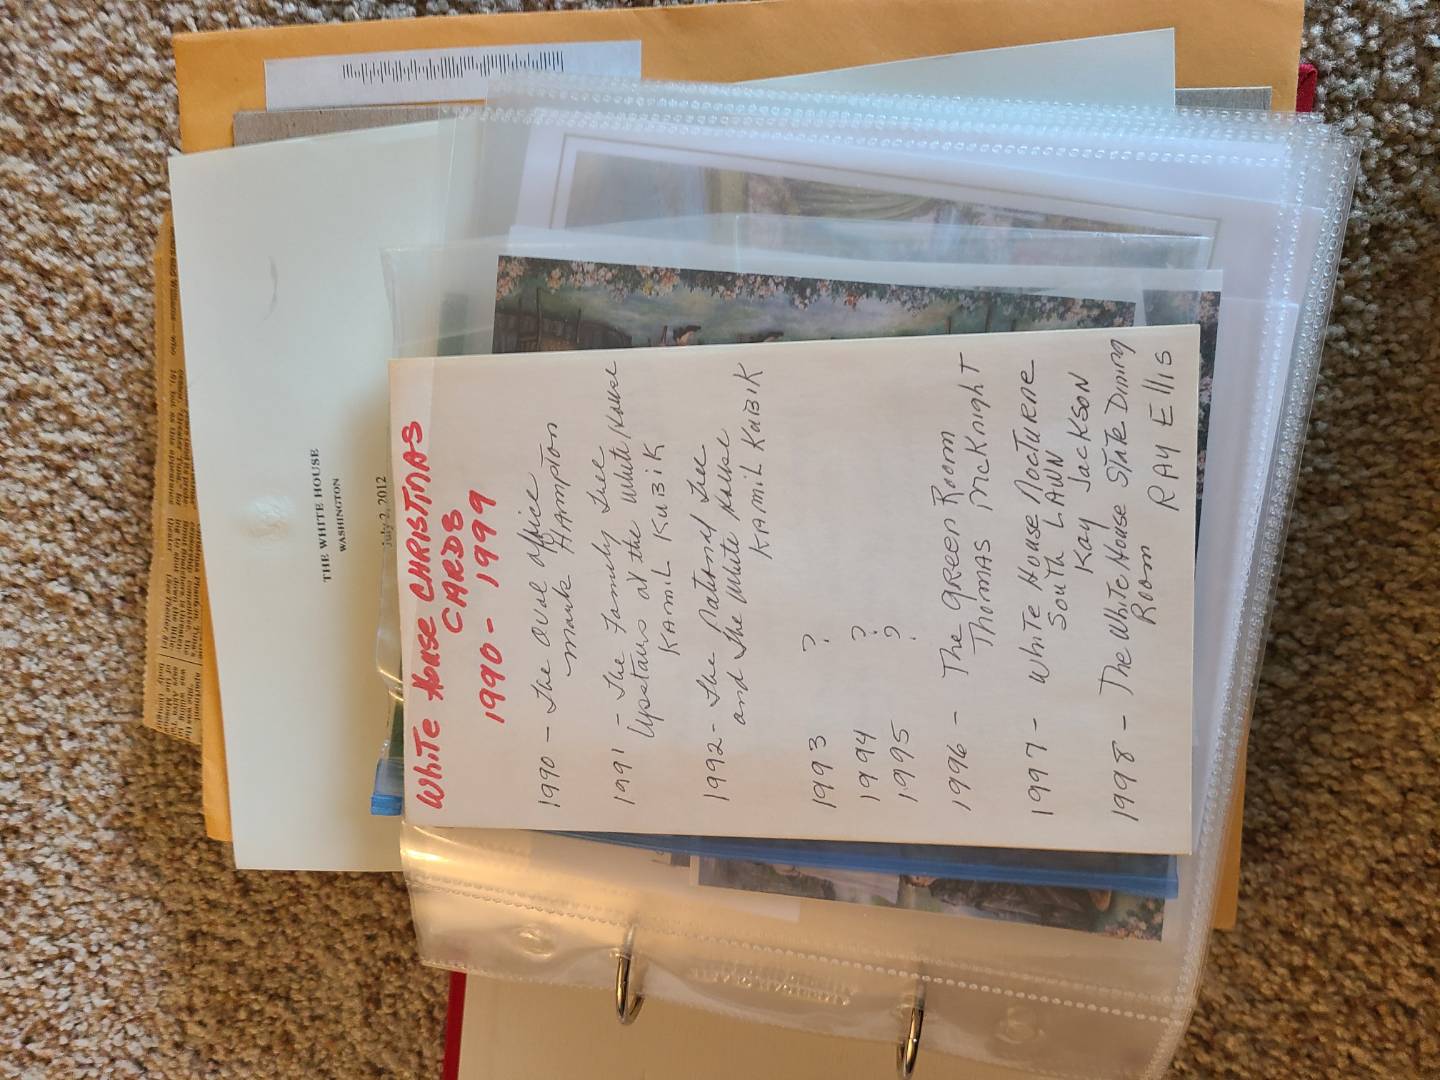 THE WHITE HOUSE
WASHINGTON
July 2, 2012
White House CHRISTMAS
CARDS
1990 - 1999
1990 - The Oval Office
Mark Hampton
1991 - The Family Tree
Upstairs at the White House
KAMIL KUBIK
1992 - The National Tree
and The White House
KAMIL KUBIK
1993 ?
1994 ?
1995 ?
1996 - The Green Room
Thomas McKnight
1997 - White House Nocturne
South LAWN
Kay Jackson
1998 - The White House State Dining
Room
RAY Ellis